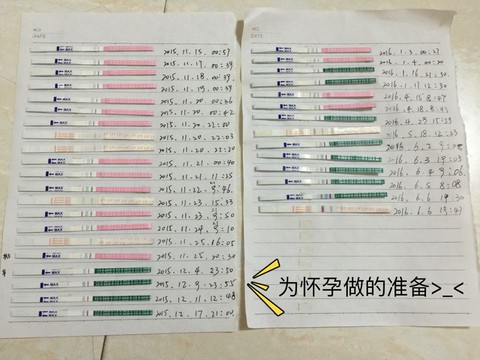 2015.11.15.00:57
2015.11.17.00:39
2015.11.18.00:39
2015.11.19.00:39
2015.11.20.00:36
2015.11.20.00:42
2015.11.20.21:00
2015.11.20.22:03
2015.11.20.22:20
2015.11.21.00:40
2015.11.21.11:25
2015.11.22.9:46
2015.11.23.15:33
2015.11.23.9:50
2015.11.24.9:10
2015.11.25.16:05
2015.11.25.20:30
2015.12.4.23:50
2015.12.9.23:55
2015.12.11.12:48
2015.12.17.21:00
2016.1.3.00:27
2016.1.4.00:20
2016.1.16.21:30
2016.1.11.12:30
2016.4.18.8:07
2016.4.18.8:41
2016.4.25.15:29
2016.5.18.12:33
2016.6.2.9:08
2016.6.3.19:03
2016.6.4.9:06
2016.6.5.8:08
2016.6.6.19:30
2016.6.6.19:47
为怀孕做的准备>_<